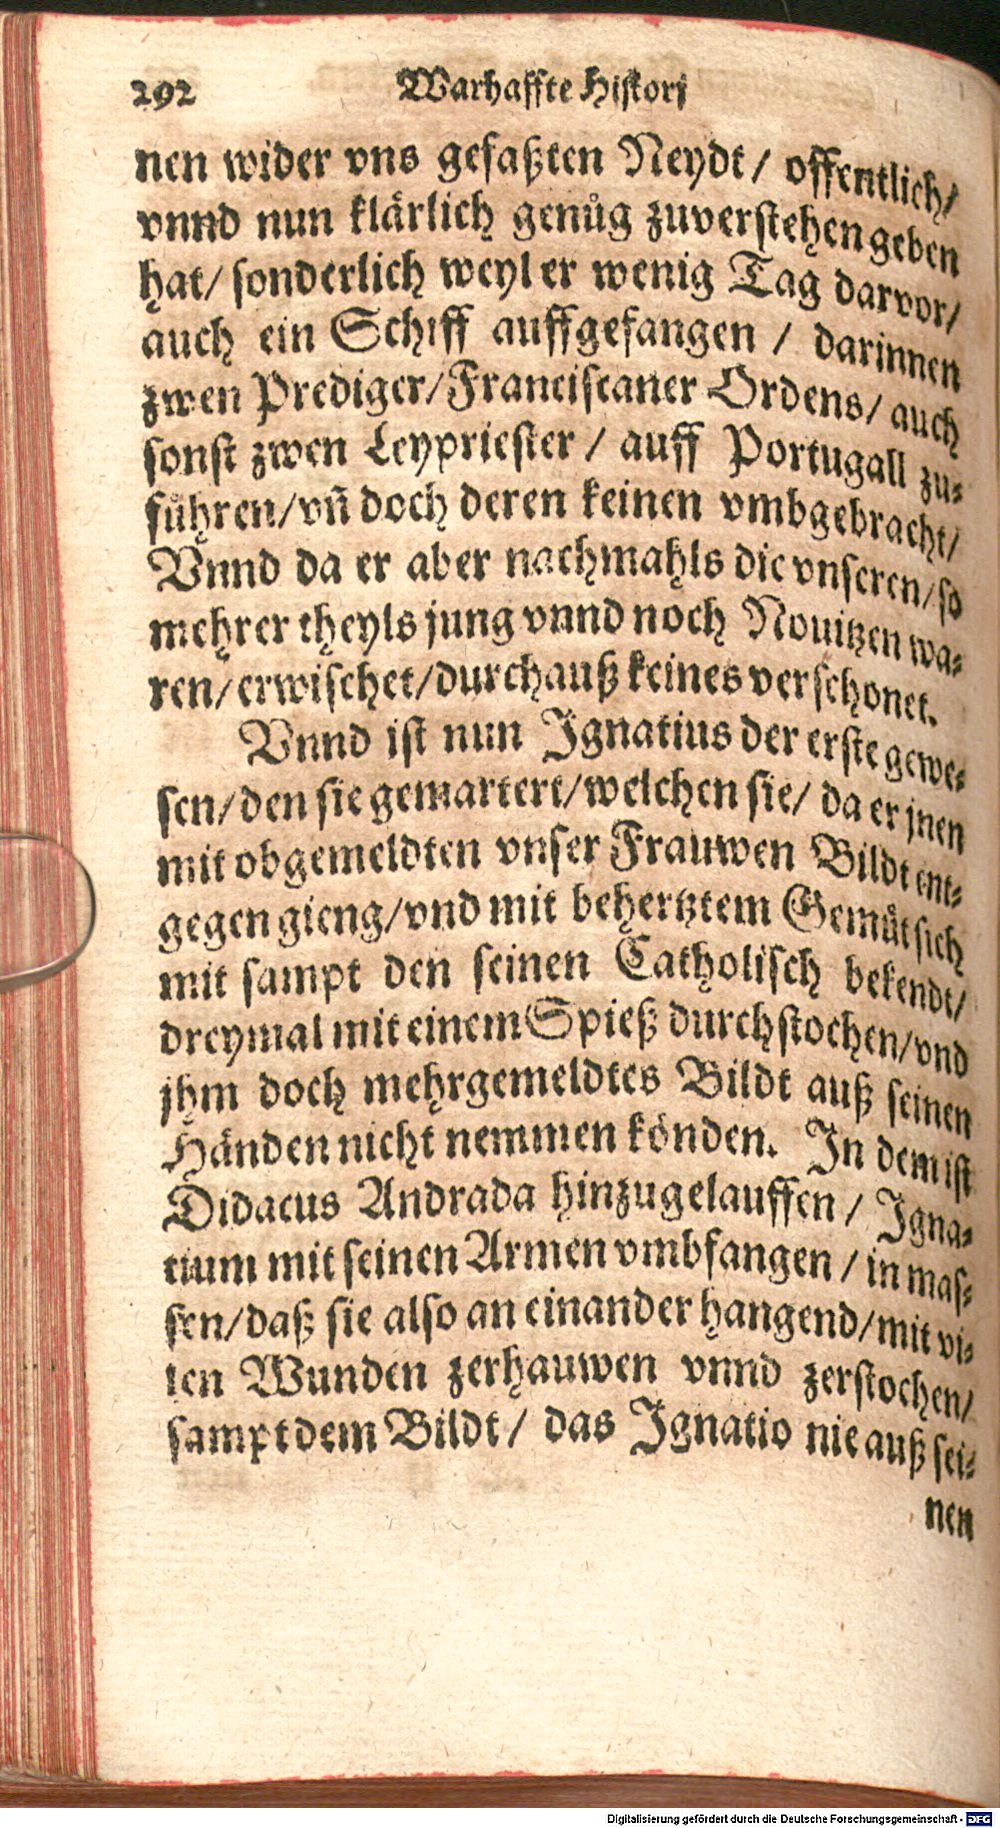 292 Warhaffte Historj
nen wider vns gefaßten Neydt/ offentlich/
vnnd nun klärlich genůg zuverstehen geben
hat/ sonderlich weyl er wenig Tag darvor/
auch ein Schiff auffgefangen / darinnen
zwen Prediger/ Franciscaner Ordens/ auch
sonst zwen Leypriester / auff Portugall zu-
führen/ vñ doch deren keinen vmbgebracht/
Vnnd da er aber nachmahls die vnseren/ so
mehrer theyls jung vnnd noch Nouitzen wa-
ren/ erwischet/ durchauß keines verschonet.
Vnnd ist nun Ignatius der erste gewe-
sen/ den sie gemartert/ welchen sie/ da er jnen
mit obgemeldten vnser Frauwen Bildt ent-
gegen gieng/ vnd mit behertztem Gemüt sich
mit sampt den seinen Catholisch bekendt/
dreymal mit einem Spieß durchstochen/ vnd
jhm doch mehrgemeldtes Bildt auß seinen
Händen nicht nemmen könden. In dem ist
Didacus Andrada hinzugelauffen / Igna-
tium mit seinen Armen vmbfangen / in mas-
sen/ daß sie also an einander hangend/ mit vi-
len Wunden zerhauwen vnnd zerstochen/
sampt dem Bildt/ das Ignatio nie auß sei-
nen
Digitalisierung gefördert durch die Deutsche Forschungsgemeinschaft - DFG